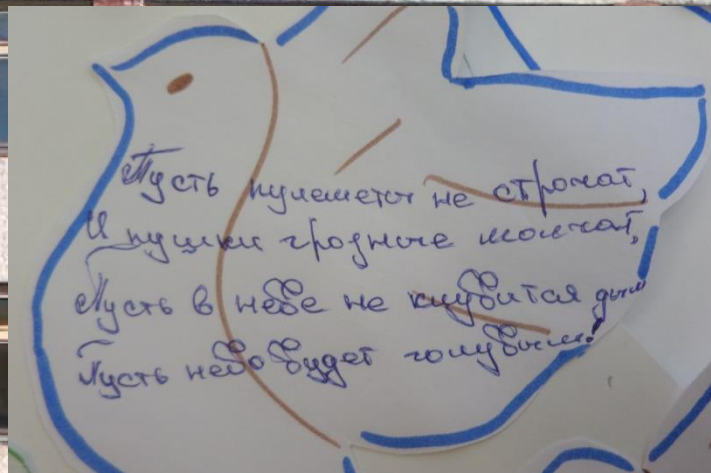 Пусть пулеметы не строчат,
И пушки грозные молчат,
Пусть в небе не клубится дым
Пусть небо будет голубым!